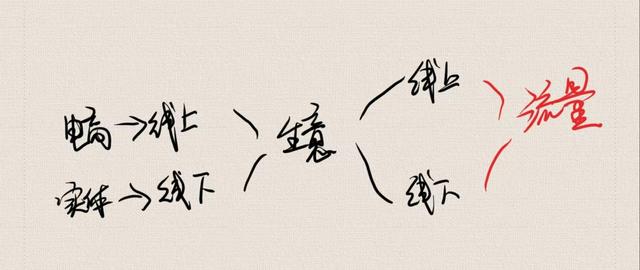 电商→线上
实体→线下
生意
线上
线下
流量